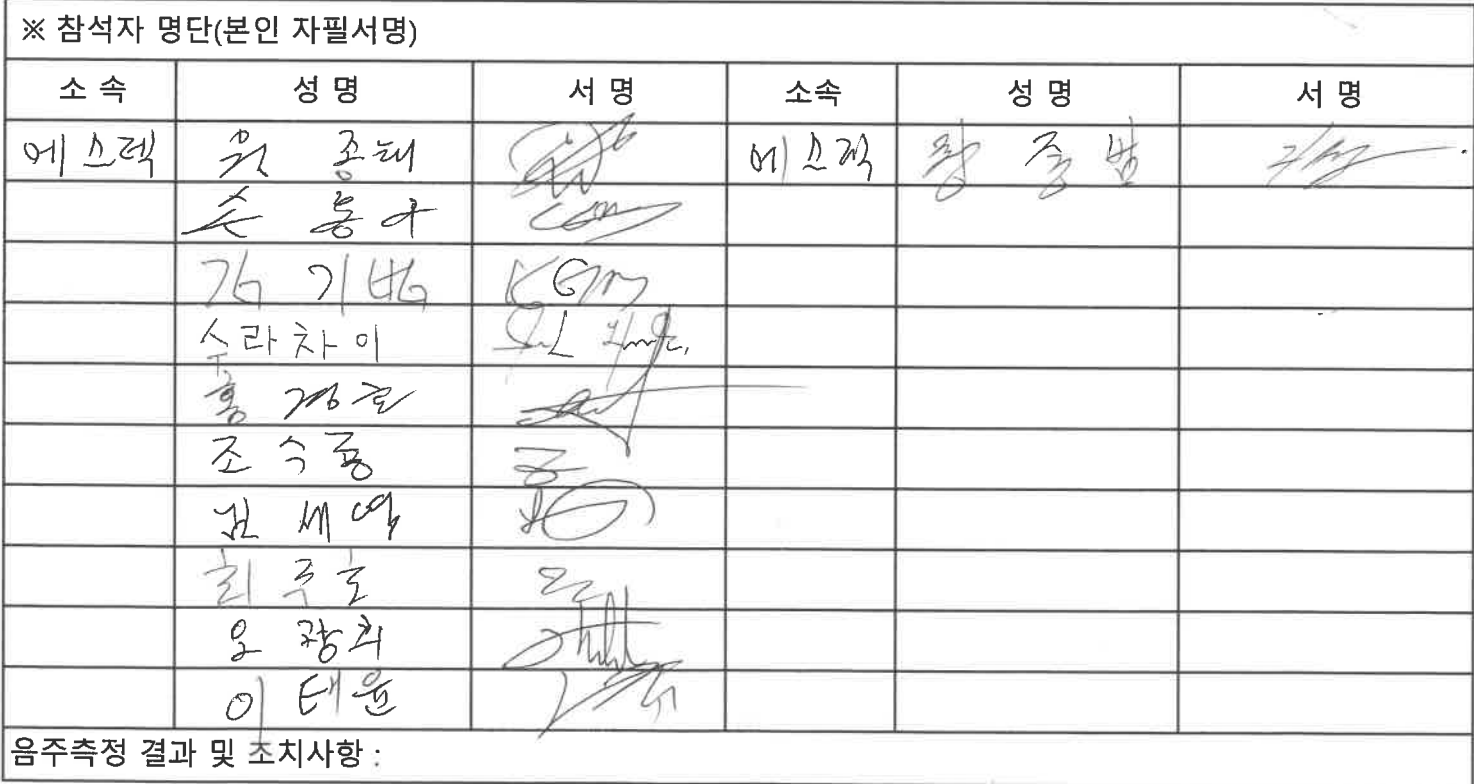 ※ 참석자 명단(본인 자필서명)
소 속 성 명 서 명 소속 성 명 서 명
에스텍 원 종태 에스텍 황 중범
손 동수
김 기범 KGM
수라차이
홍 경호
조 수용
김 세영
최 주호
오 광희
이 태윤
음주측정 결과 및 조치사항 :